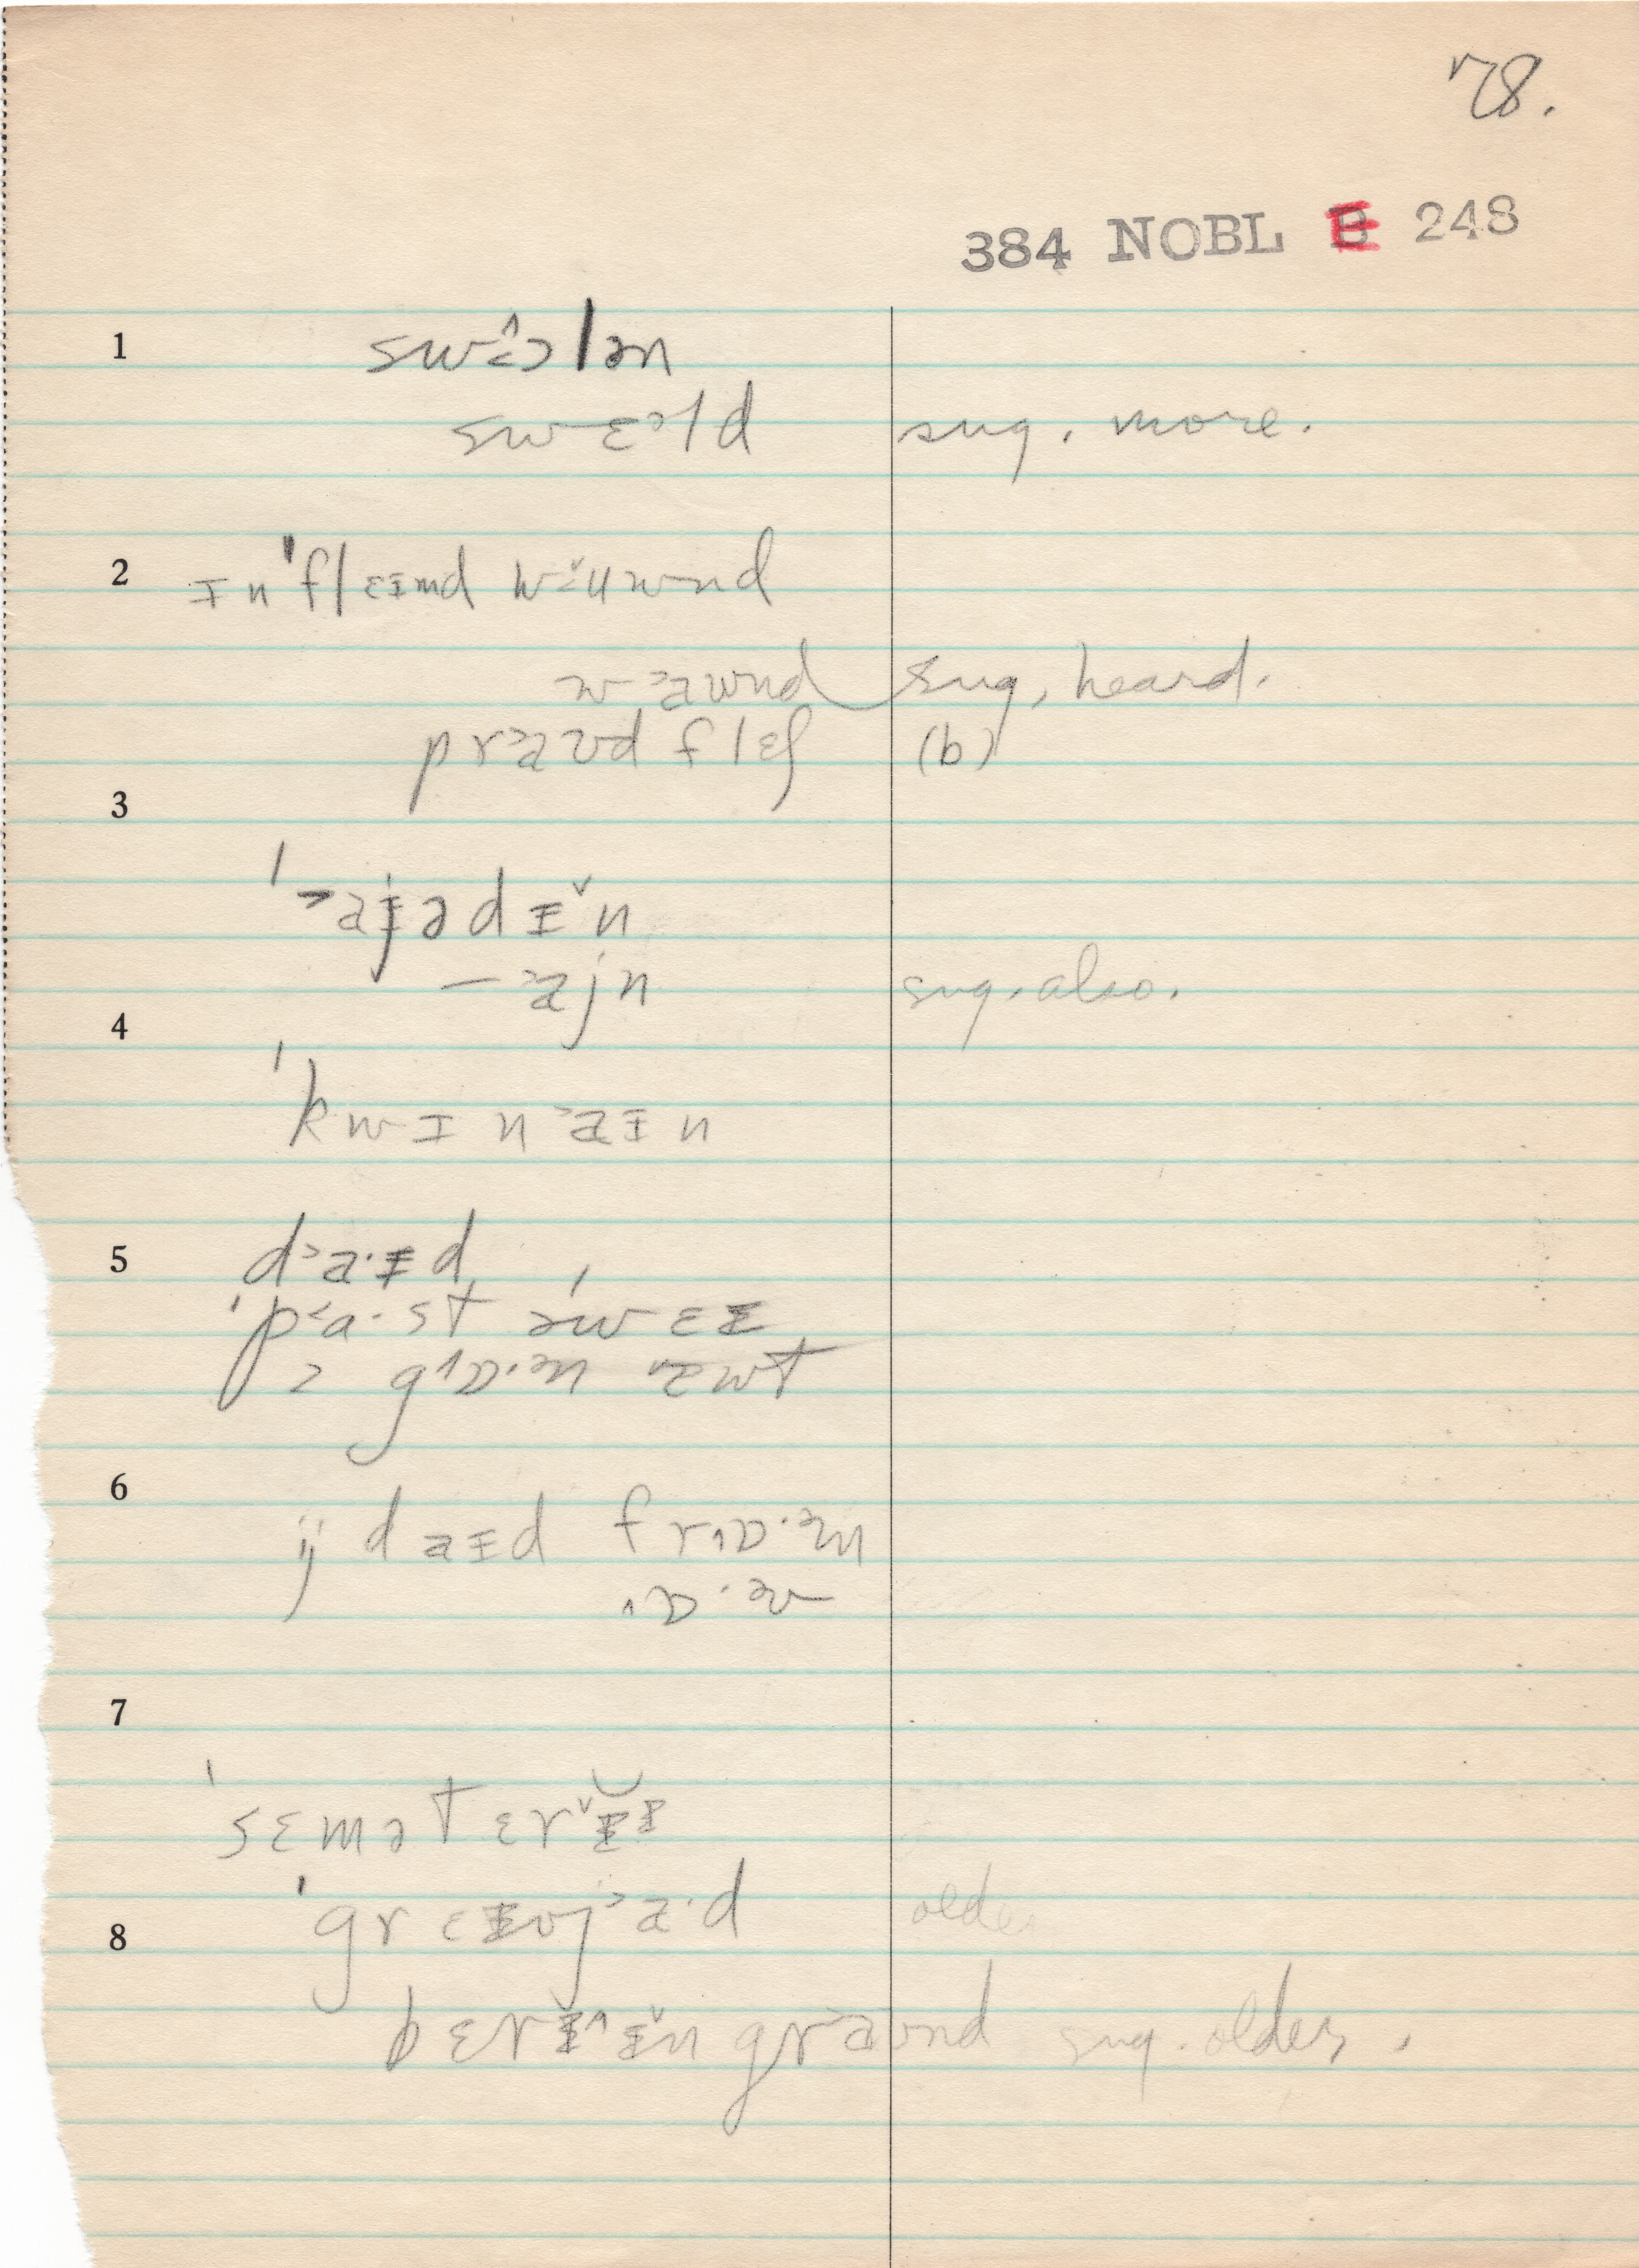 78.
384 NOBL E 248
1 swɔlən
swɛəld sug. more.
2 ɪn'flɛɪmd wuwnd
wawnd sug. heard.
praʊd flɛʃ (b)
3
'aɪədɪn
–ajn sug. also.
4
'kwɪnaɪn
5 da·ɪd
'pa·st ə'weɪ
gɒ·ən æwt
6
ij daɪd frɒ·əm
ɒ·əv
7
'sɛmətɛrɪɪ
'grɛɪvja·d older
8
bɛrɪɪn graʊnd sug. older.